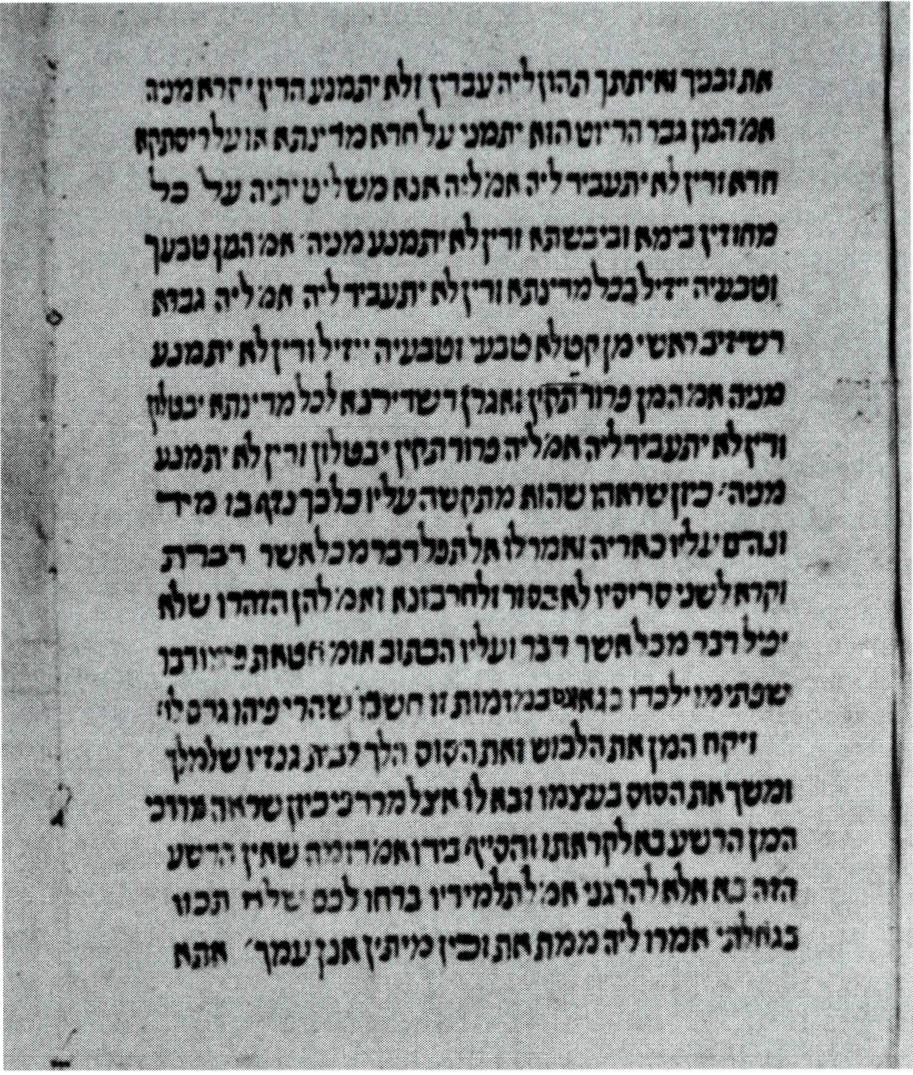 את ובניך ואיתתך תהון ליה עבדין ולא יתמנע הדין יקרא מניה
אמ׳ המן גבר הדיוט הוא יתמני על חדא מדינתא או על ריסתקא
חדא ודין לא יתעביד ליה אמ׳ ליה אנא משליט יתיה על כל
מחוזין בימא וביבשתא ודין לא יתמנע מניה אמ׳ המן טבעך
וטבעיה ייזיל בכל מדינתא ודין לא יתעביד ליה אמ׳ ליה גברא
דשיזיב ראשי מן קטלא טבעי וטבעיה ייזיל ודין לא יתמנע
מניה אמ׳ המן פרודתקין ואגרן דשדירנא לכל מדינתא יבטלון
ודין לא יתעביד ליה אמ׳ ליה פרודתקין יבטלון ודין לא יתמנע
מניה׳ כיון שראהו שהוא מתקשה עליו כל כך נזף בו מיד
ונהם עליו כאריה ואמר לו אל תפל דבר מכל אשר דברת
וקרא לשני סריסיו לאהסור ולחרבונא ואמ׳ להן הזהרו שלא
יפיל דבר מכל אשר דבר ועליו הכתוב אומ׳ חטאת פימו דבר
שפתימו וילכדו בגאונם במזימות זו חשבו שהרי פיהו גרם לו׳
ויקח המן את הלבוש ואת הסוס הלך לבית גנזיו שלמלך
ומשך את הסוס בעצמו ובא לו אצל מרדכי כיון שראה מרדכי
המן הרשע בא לקראתו והסייף בידו אמ׳ דומה שאין הרשע
הזה בא אלא להרגני אמ׳ לתלמידיו ברחו לכם שלא תכוו
בגחלתי אמרו ליה ממת את ובין מיתין אנן עמך׳ אתא